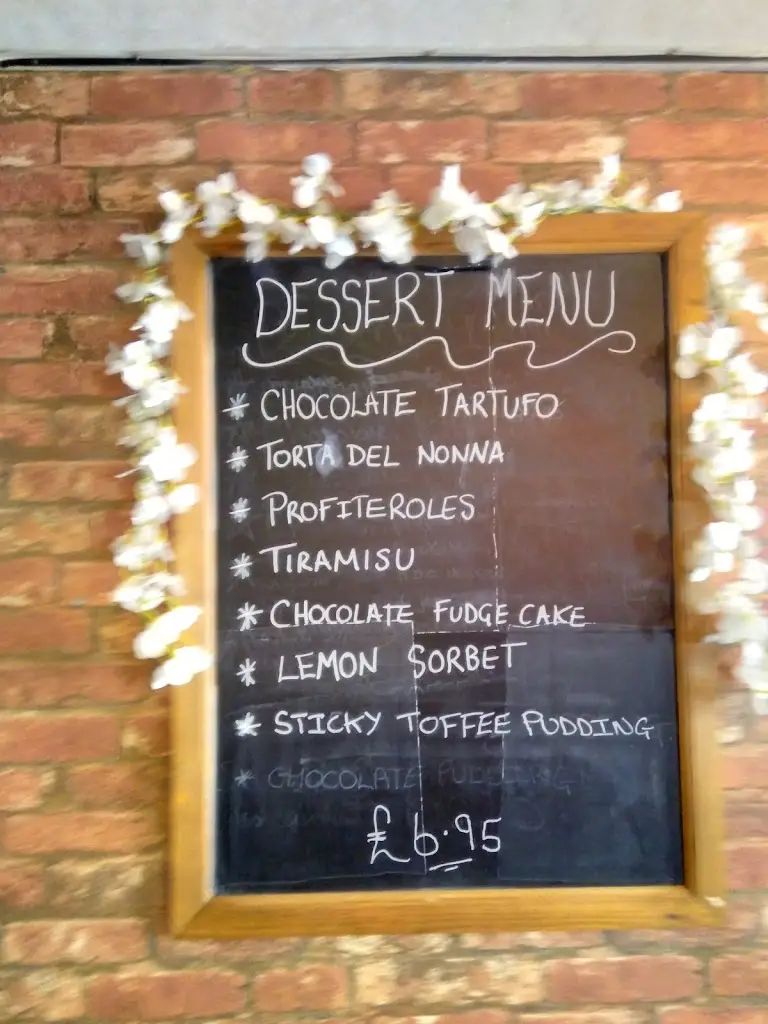 DESSERT MENU
* CHOCOLATE TARTUFO
* TORTA DEL NONNA
* PROFITEROLES
* TIRAMISU
* CHOCOLATE FUDGE CAKE
* LEMON SORBET
* STICKY TOFFEE PUDDING
* CHOCOLATE PUDDING
£6.95